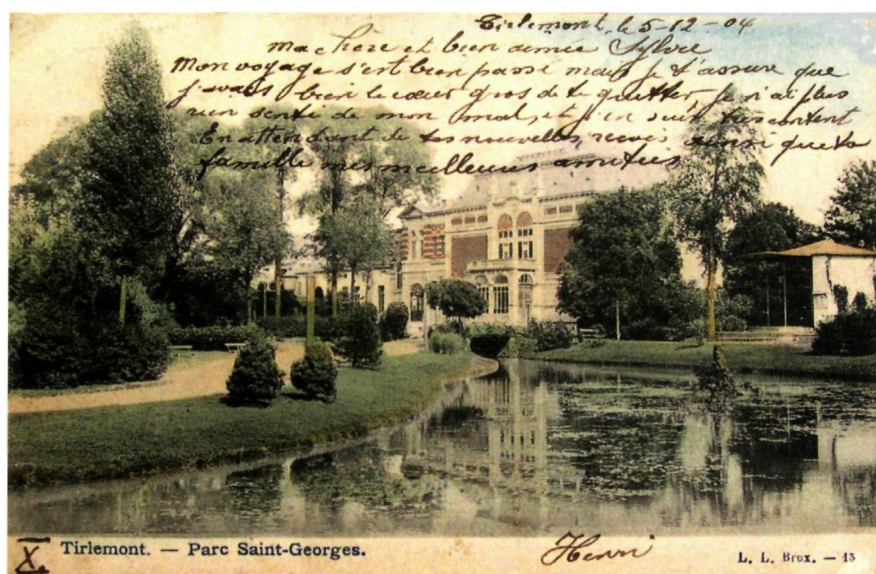 Tirlemont, le 5-12-04
ma chère et bien aimée Sylvie
Mon voyage s'est bien passé mais je t'assure que
j'avais bien le cœur gros de te quitter, je n'ai plus
rien senti de mon mal, et j'en suis très content
En attendant de tes nouvelles, reçois ainsi que ta
famille mes meilleures amitiés
X.
Tirlemont. — Parc Saint-Georges.
Henri
L. L. Brux. — 13